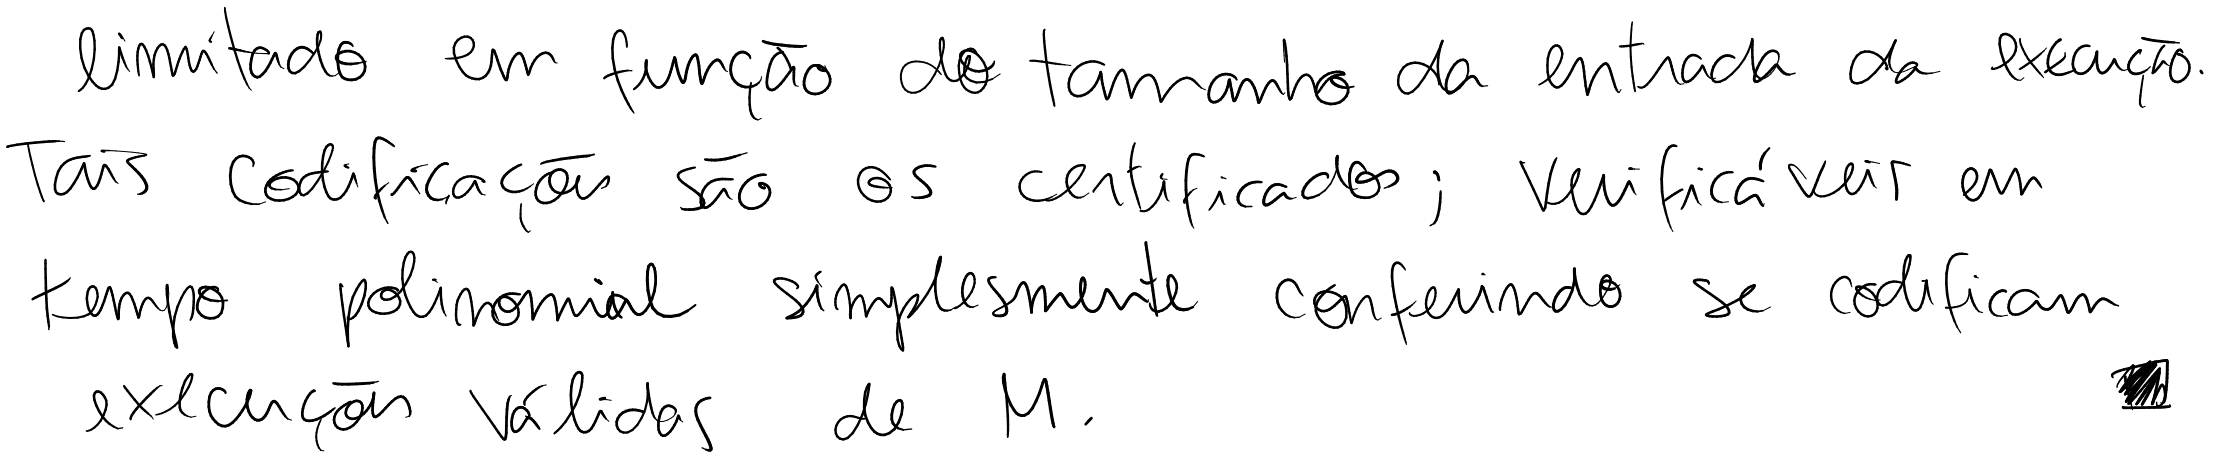 limitado em função do tamanho da entrada da execução.
Tais codificações são os certificados; verificáveis em
tempo polinomial simplesmente conferindo se codificam
execuções válidas de M.